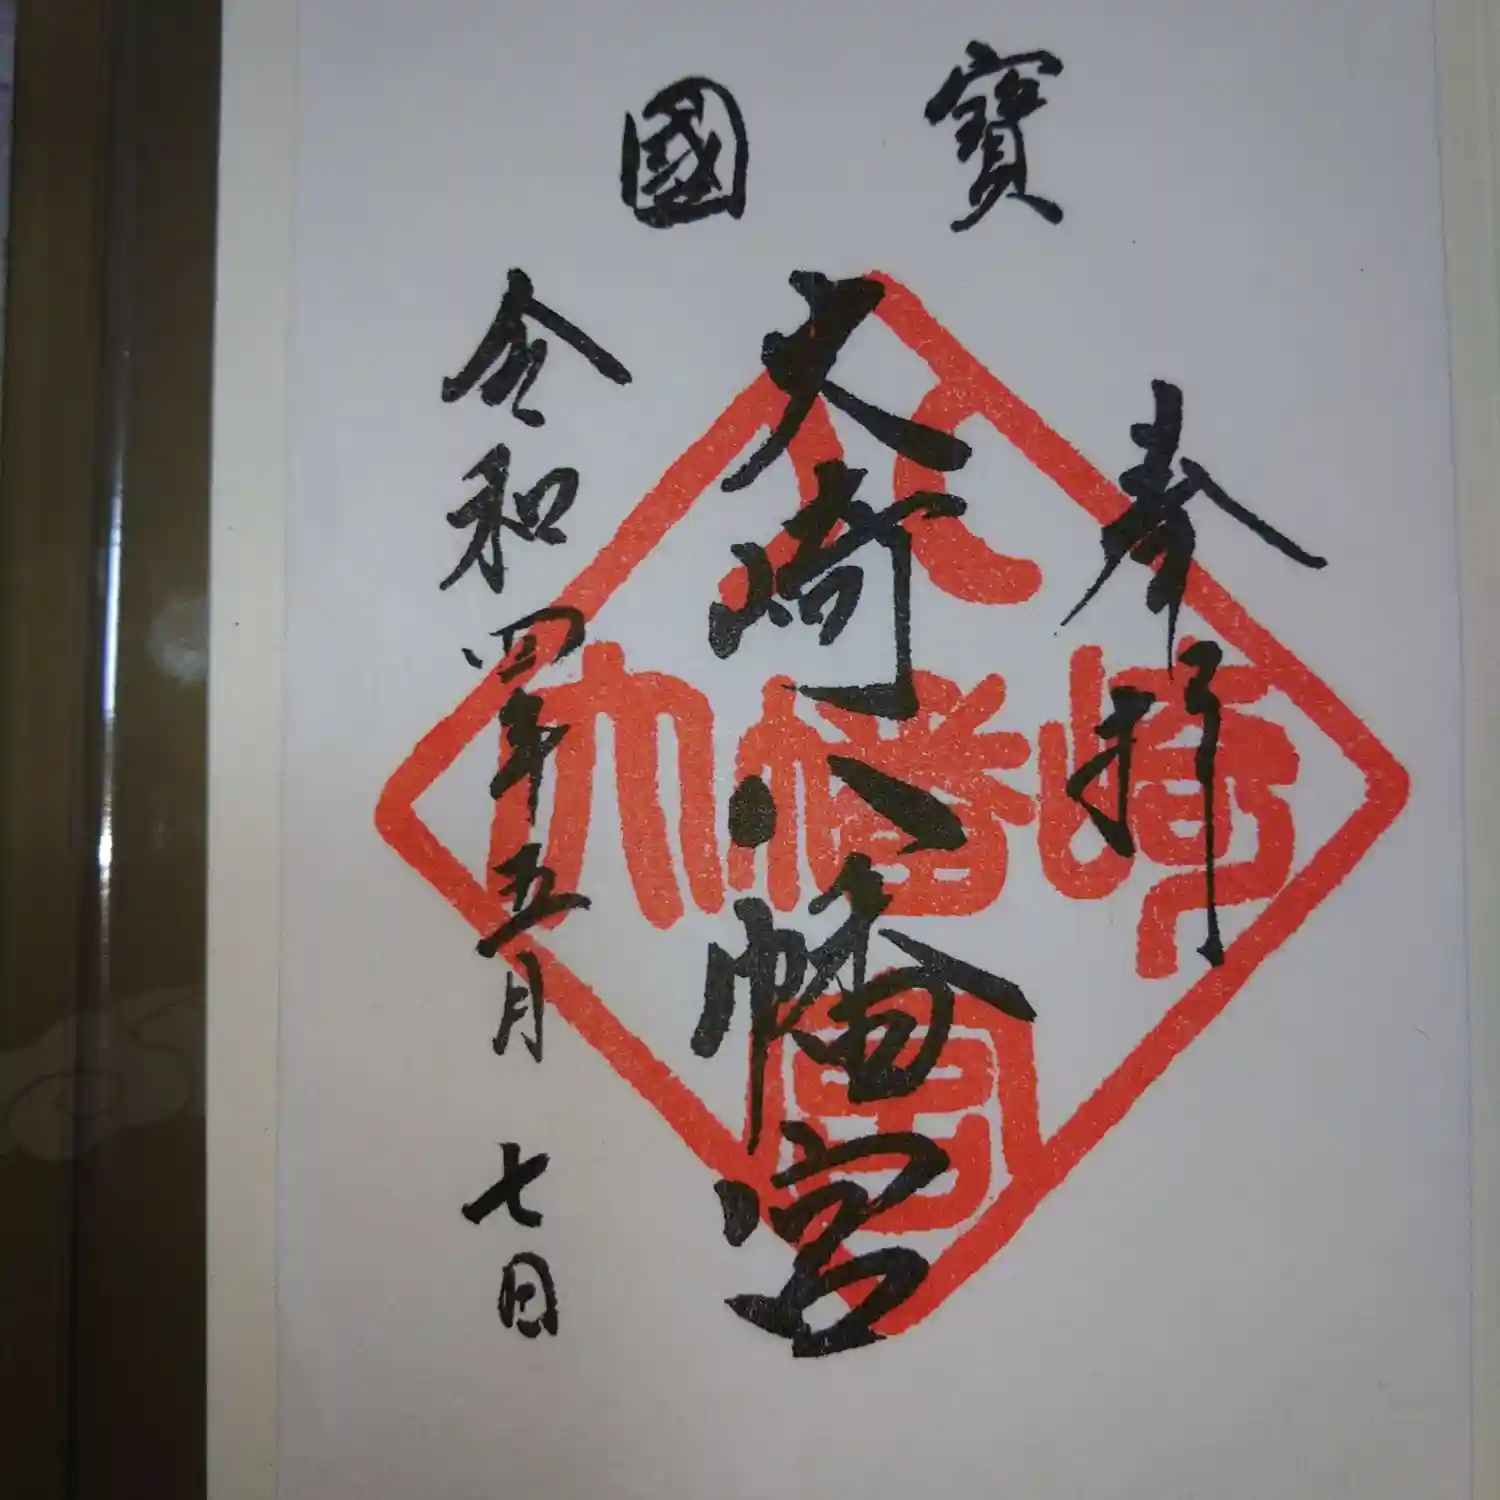 國寶
奉拝
大崎八幡宮
令和四年五月七日
八
大幡崎
宮